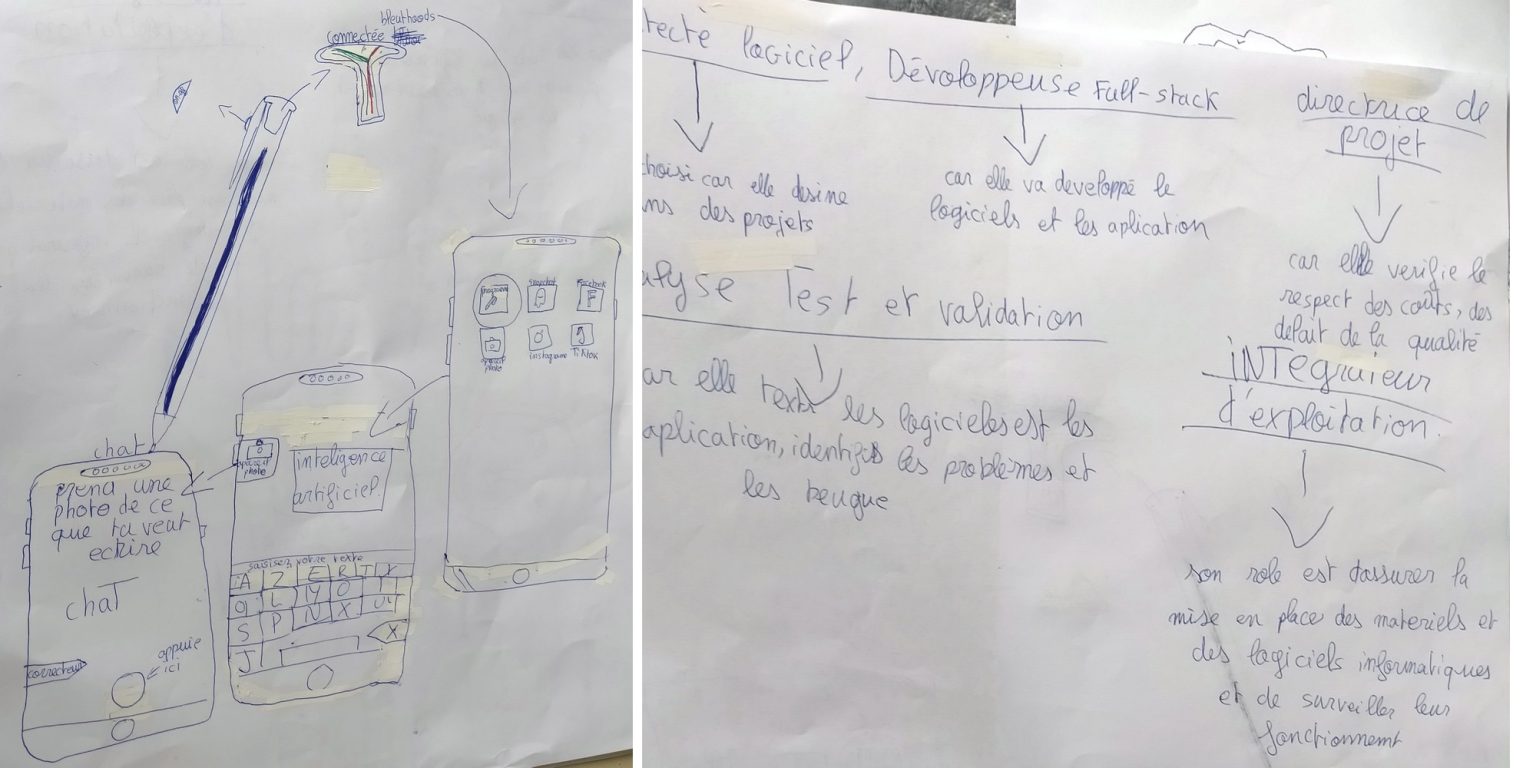 bleuthoods
connectée
chat
prena une
photo de ce
que tu veut
ecrire
chat
correcteur
appuie
ici
appareil
photo
inteligence
artificiel.
saisisez votre texte
A Z E R T Y
Q L M O
S P N X
J X
snapchat
Facebook
F
appareil
photo
instagrame
TikTok
tecte logiciel, Dévoloppeuse Full-stack
choisi car elle desine
ns des projets
car elle va developpé le
logiciels et les aplication
directrice de
projet
car elle verifie le
respect des coûts, des
delait de la qualité
alyse Test et validation
ar elle text les logicieles est les
aplication, identifis les problèmes et
les beugue
iNTegraieur
d'exploitation.
son role est d'assurer la
mise en place des materiels et
des logiciels informatiques
et de surveiller leur
fonctionnemt